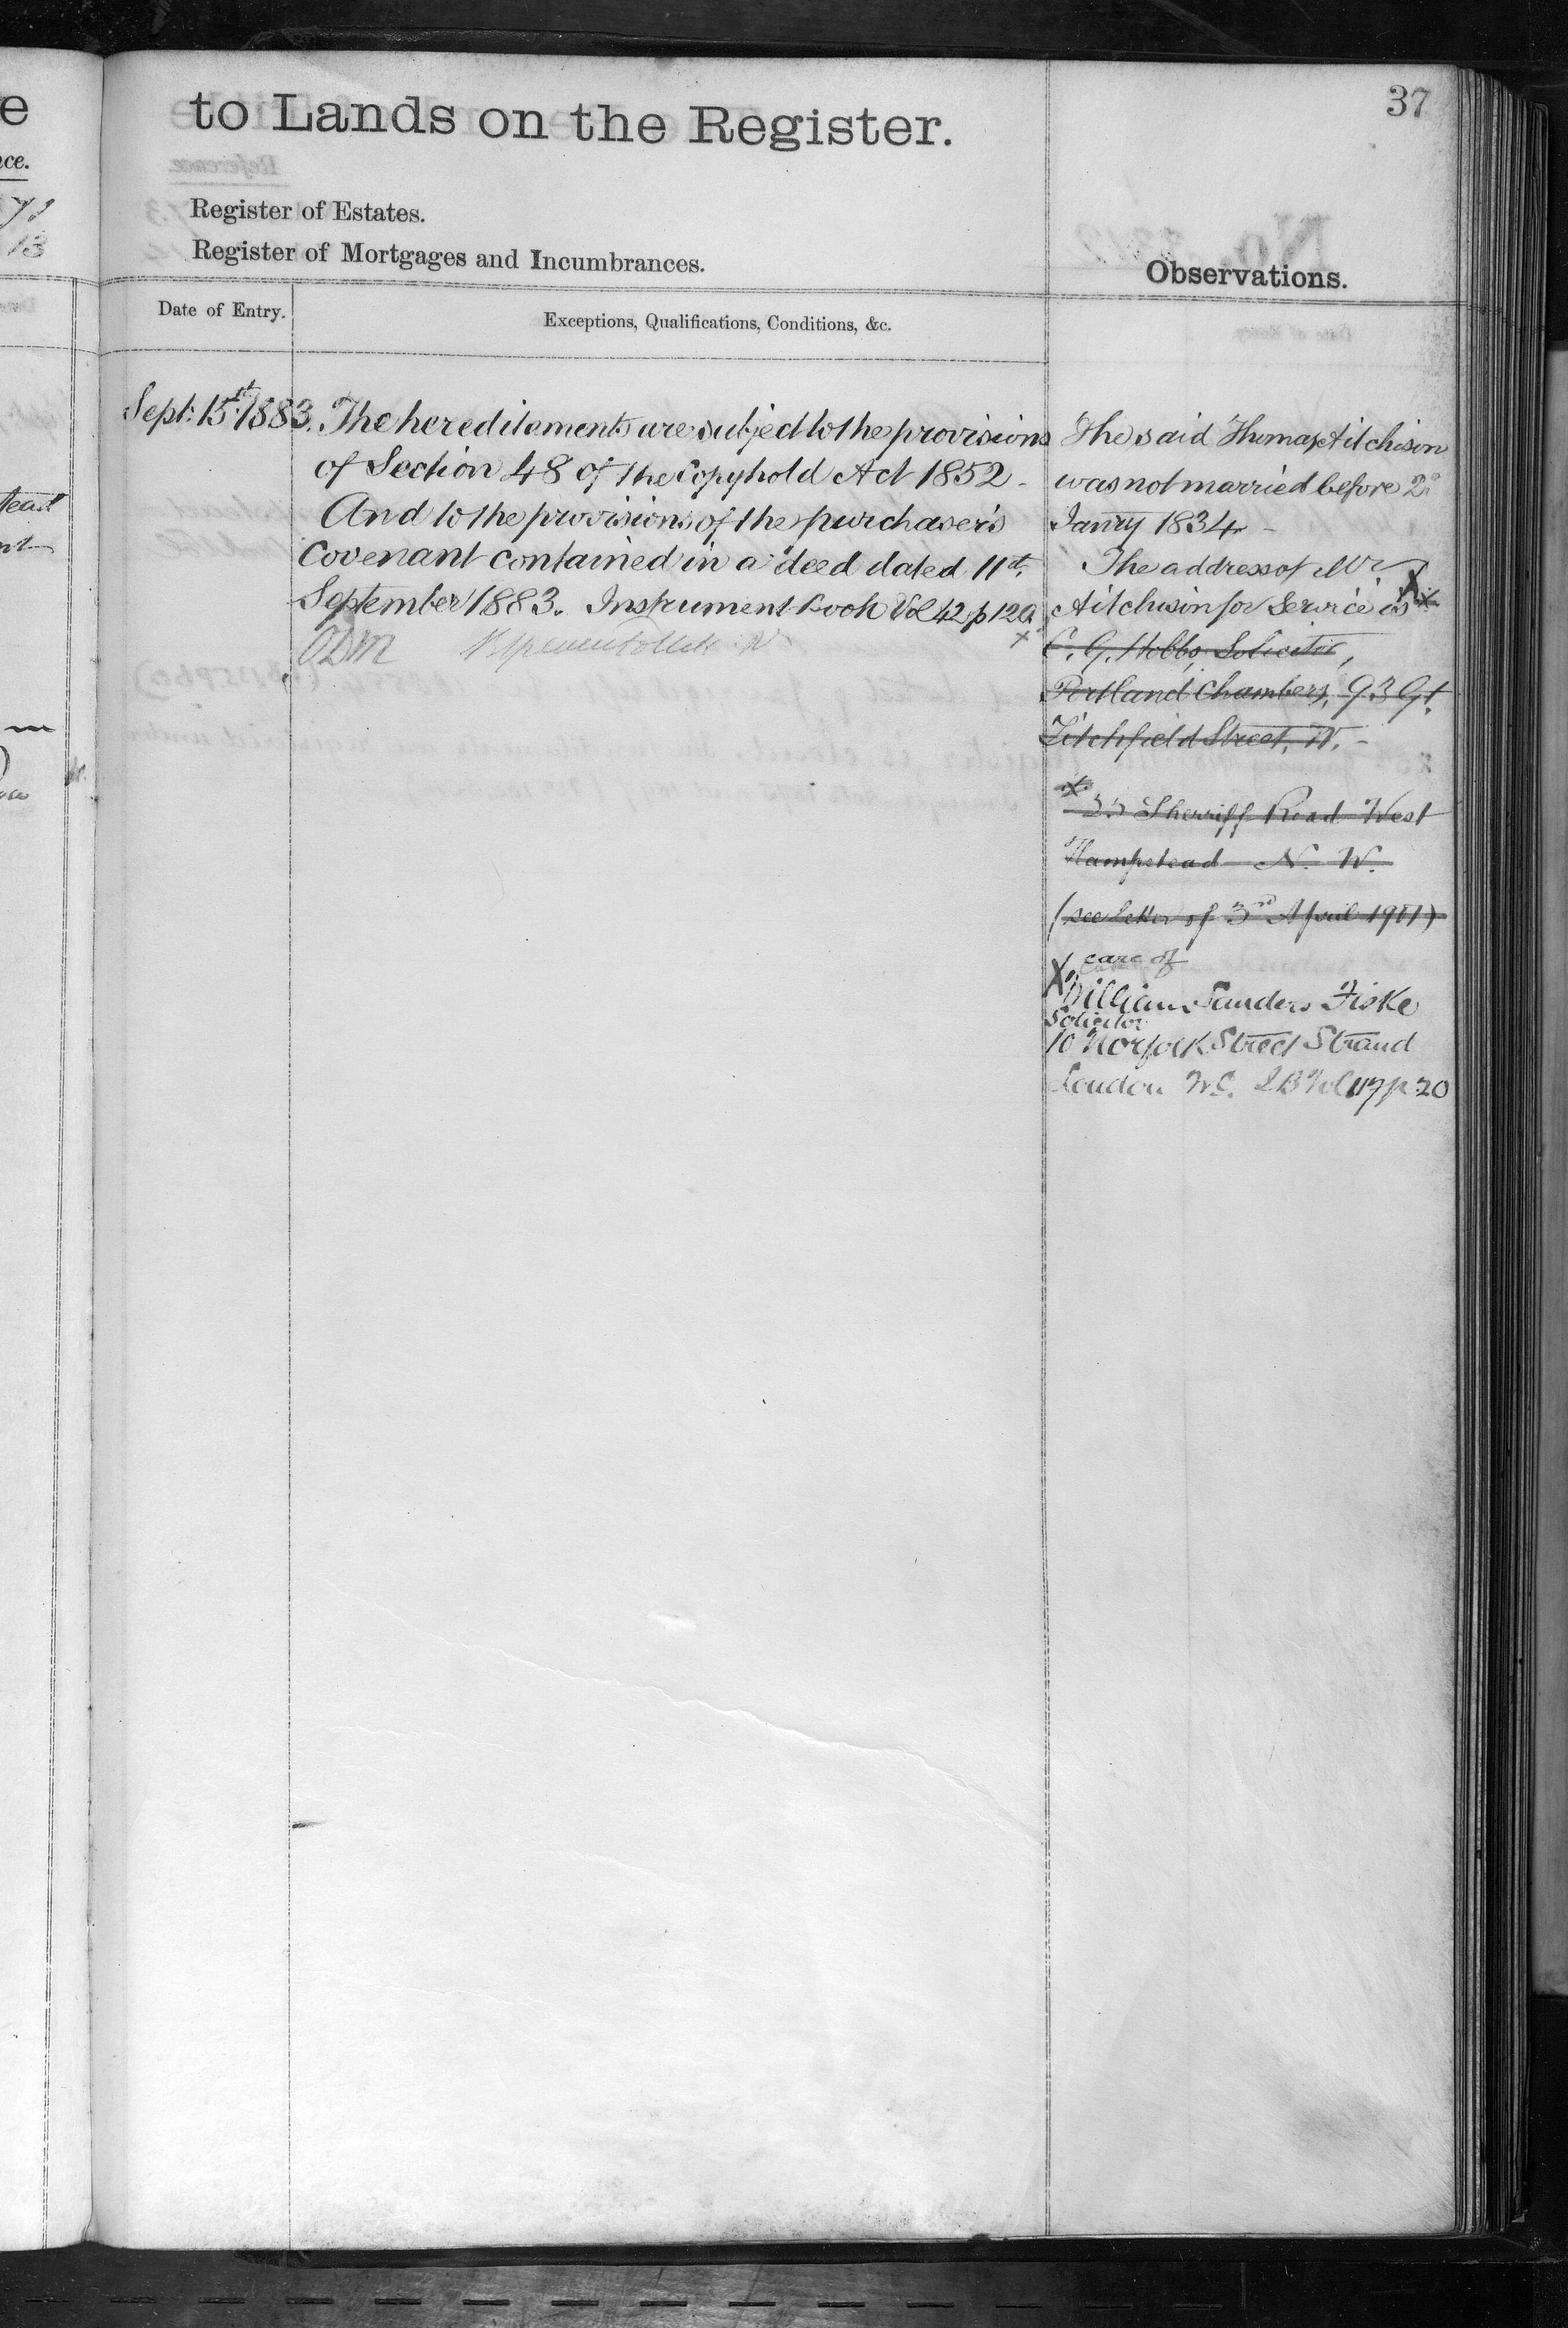 37
to Lands on the Register.
Register of Estates.
Register of Mortgages and Incumbrances.
Observations.
Date of Entry.
Exceptions, Qualifications, Conditions, &c.
Sept: 15th 1883.
The hereditaments are subject to the provisions
of Section 48 of the Copyhold Act 1852 -
And to the provisions of the purchaser's
Covenant contained in a deed dated 11th
September 1883. Instrument Book Vol 42 p 120
The said Thomas Aitchison
was not married before 2d
Janry 1834 -
The address of Mr
Aitchison for Service is
C. G. Hobbs, Solicitor,
Portland Chambers, 93 Gt.
Titchfield Street, W. -
Sherriff Road West
Hampstead N. W.
(see letter of 3rd April 1901)
care of
William Sanders Fiske
Solicitor
10 Norfolk Street Strand
London W.C. I B Vol 117 p 20